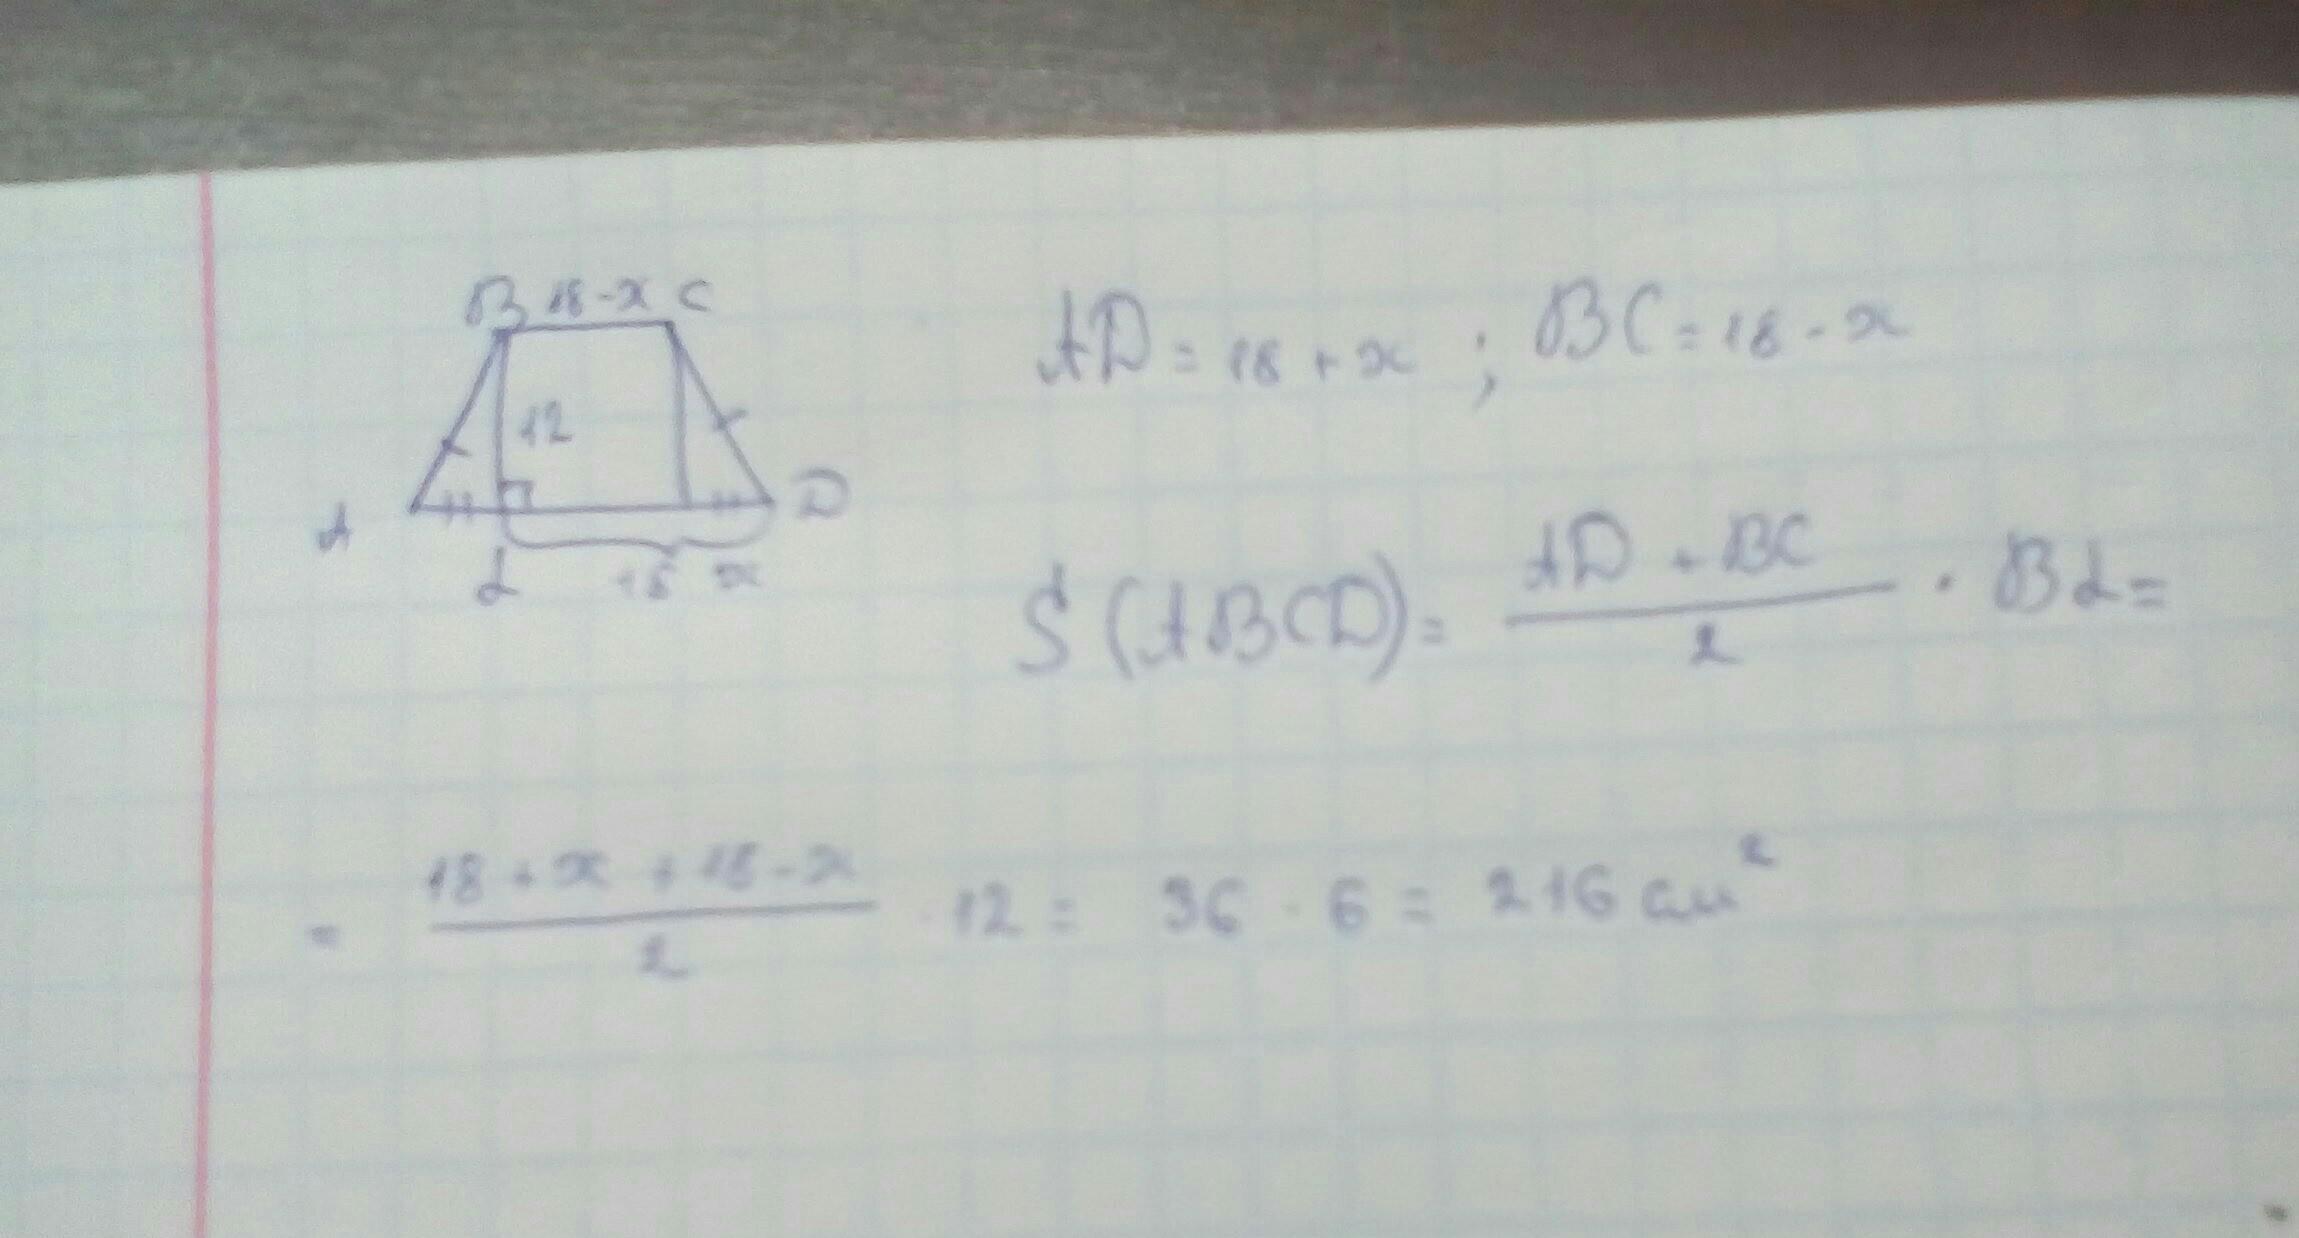 B 18-x C
AD = 18 + x ; BC = 18 - x
12
A D
L 18 x
S (ABCD) = AD + BC / 2 · BL =
= 18 + x + 18 - x / 2 · 12 = 36 · 6 = 216 см²